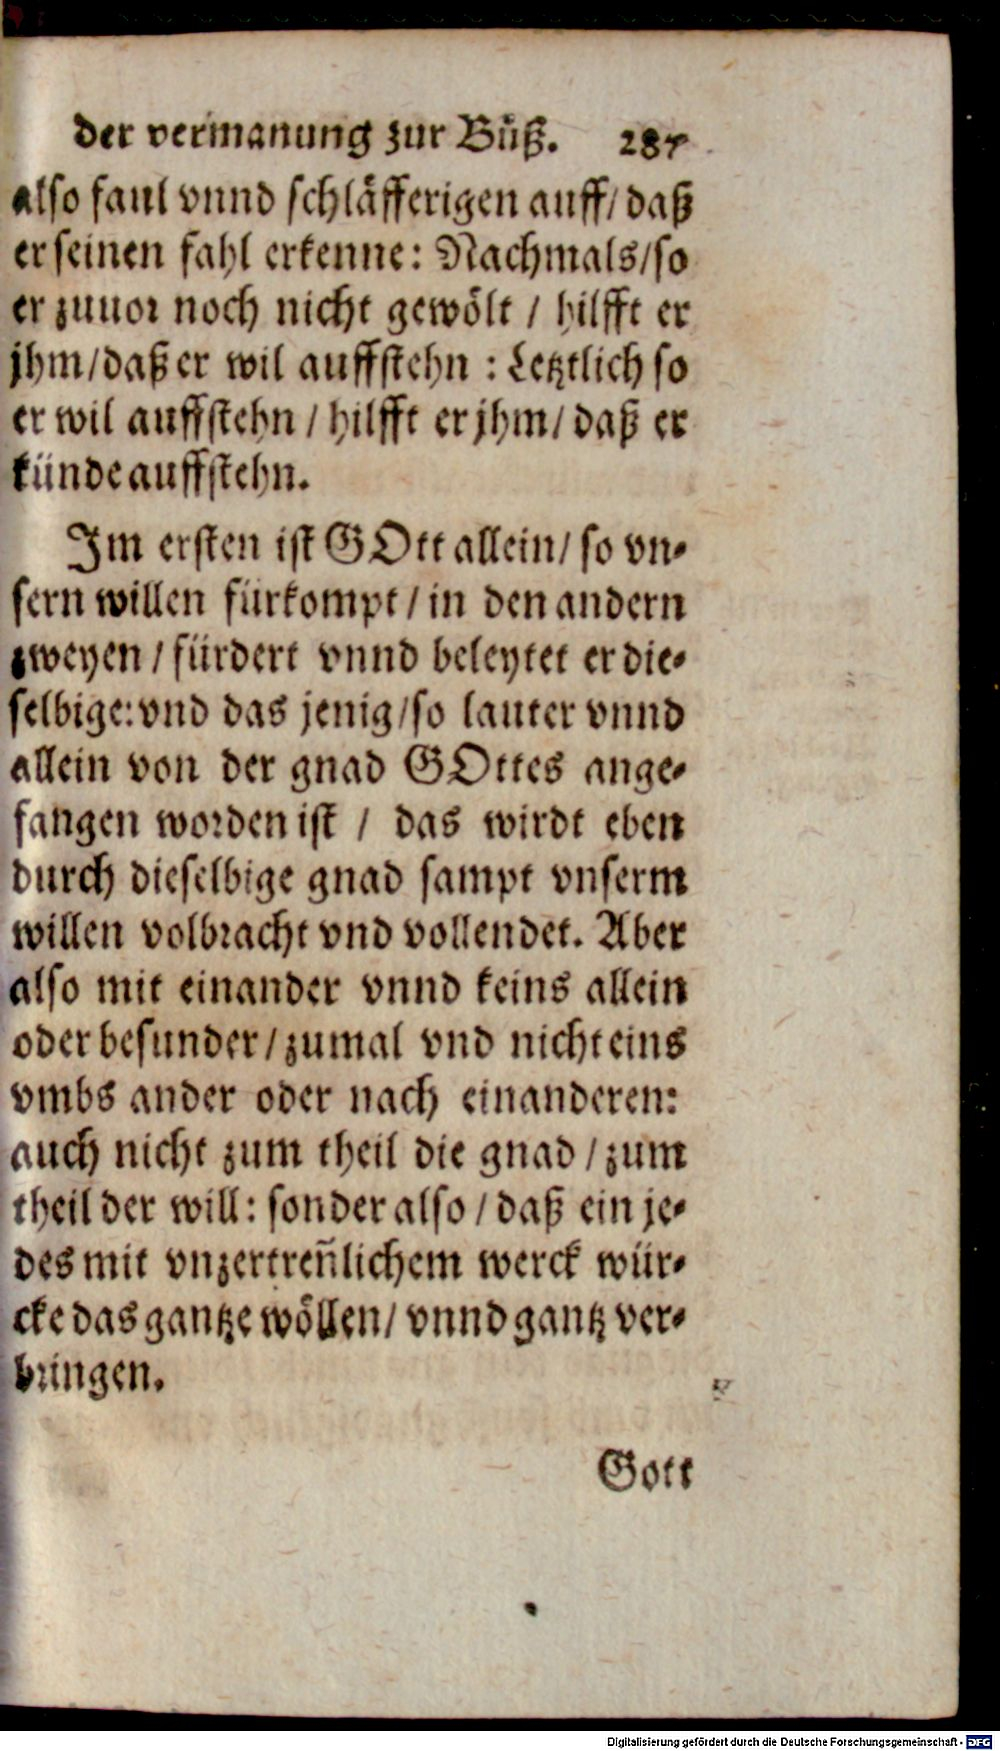 der vermanung zur Bůß. 287
also faul vnnd schläfferigen auff/ daß
er seinen fahl erkenne: Nachmals/so
er zuuor noch nicht gewölt / hilfft er
jhm/daß er wil auffstehn : Letztlich so
er wil auffstehn / hilfft er jhm/ daß er
künde auffstehn.
Im ersten ist GOtt allein/ so vn-
sern willen fürkompt / in den andern
zweyen / fürdert vnnd beleytet er die-
selbige: vnd das jenig/so lauter vnnd
allein von der gnad GOttes ange-
fangen worden ist / das wirdt eben
durch dieselbige gnad sampt vnserm
willen volbracht vnd vollendet. Aber
also mit einander vnnd keins allein
oder besunder/zumal vnd nicht eins
vmbs ander oder nach einanderen:
auch nicht zum theil die gnad / zum
theil der will: sonder also / daß ein je-
des mit vnzertreñlichem werck wür-
cke das gantze wöllen/ vnnd gantz ver-
bringen.
Gott
Digitalisierung gefördert durch die Deutsche Forschungsgemeinschaft - DFG